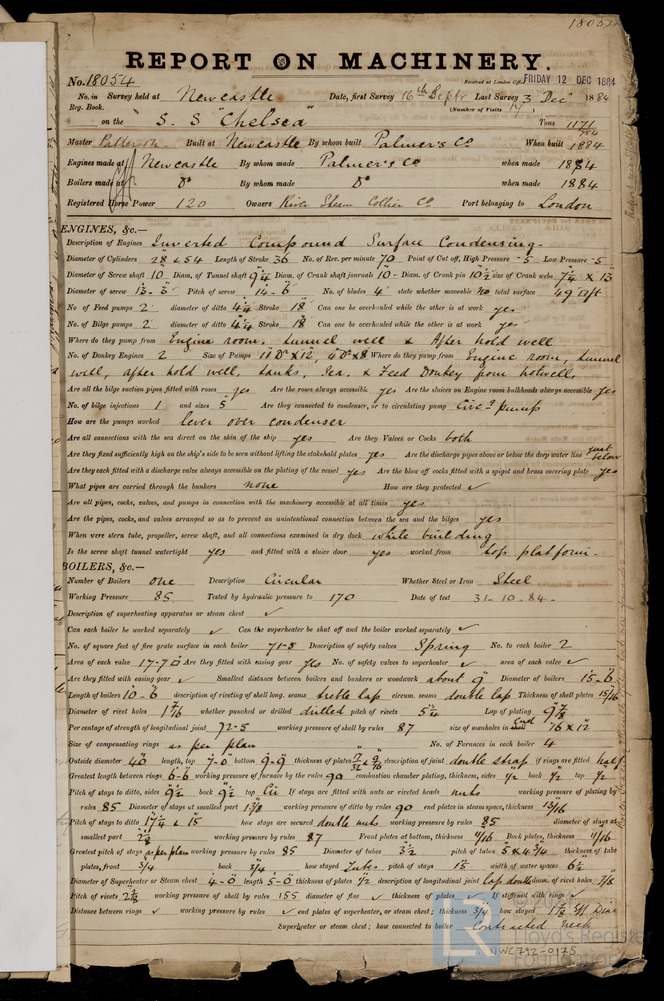 18054
REPORT ON MACHINERY.
No. 18054 Received at London Office FRIDAY 12 DEC 1884
No. in Survey held at Newcastle Date, first Survey 16th Septr Last Survey 3 Decr 1884
Reg. Book. (Number of Visits
on the S.S "Chelsea" Tons 1171
Master Patterson Built at Newcastle By whom built Palmer's Co When built 1884
Engines made at Newcastle By whom made Palmer's Co when made 1884
Boilers made at Do By whom made Do when made 1884
Registered Horse Power 120 Owners River Steam Collier Co Port belonging to London
ENGINES, &c.—
Description of Engines Inverted Compound Surface Condensing.
Diameter of Cylinders 28 & 54 Length of Stroke 36 No. of Rev. per minute 70 Point of Cut off, High Pressure .5 Low Pressure .5
Diameter of Screw shaft 10 Diam. of Tunnel shaft 9¼ Diam. of Crank shaft journals 10 Diam. of Crank pin 10½ size of Crank webs 7¼ x 13
Diameter of screw 13-3 Pitch of screw 14-6 No. of blades 4 state whether moveable no total surface 49
No. of Feed pumps 2 diameter of ditto 4¼ Stroke 18 Can one be overhauled while the other is at work yes
No. of Bilge pumps 2 diameter of ditto 4¼ Stroke 18 Can one be overhauled while the other is at work yes
Where do they pump from Engine room, tunnel well & After hold well
No. of Donkey Engines 2 Size of Pumps 11 D x 12, 4 D x 8 Where do they pump from Engine room, tunnel
well, after hold well, tanks, Sea, & Feed Donkey from hotwell,
Are all the bilge suction pipes fitted with roses yes Are the roses always accessible yes Are the sluices on Engine room bulkheads always accessible yes
No. of bilge injections 1 and sizes 5 Are they connected to condenser, or to circulating pump Circg pump
How are the pumps worked lever over condenser
Are all connections with the sea direct on the skin of the ship yes Are they Valves or Cocks both
Are they fixed sufficiently high on the ship's side to be seen without lifting the stokehold plates yes Are the discharge pipes above or below the deep water line just below
Are they each fitted with a discharge valve always accessible on the plating of the vessel yes Are the blow off cocks fitted with a spigot and brass covering plate yes
What pipes are carried through the bunkers none How are they protected ✓
Are all pipes, cocks, valves, and pumps in connection with the machinery accessible at all times yes
Are the pipes, cocks, and valves arranged so as to prevent an unintentional connection between the sea and the bilges yes
When were stern tube, propeller, screw shaft, and all connections examined in dry dock while building
Is the screw shaft tunnel watertight yes and fitted with a sluice door yes worked from top platform.
BOILERS, &c.—
Number of Boilers one Description Circular Whether Steel or Iron Steel
Working Pressure 85 Tested by hydraulic pressure to 170 Date of test 31-10-84-
Description of superheating apparatus or steam chest ✓
Can each boiler be worked separately ✓ Can the superheater be shut off and the boiler worked separately ✓
No. of square feet of fire grate surface in each boiler 71-5 Description of safety valves Spring No. to each boiler 2
Area of each valve 17-70 Are they fitted with easing gear yes No. of safety valves to superheater ✓ area of each valve ✓
Are they fitted with easing gear ✓ Smallest distance between boilers and bunkers or woodwork about 9 Diameter of boilers 15-6
Length of boilers 10-6 description of riveting of shell long. seams treble lap circum. seams double lap Thickness of shell plates 15/16
Diameter of rivet holes 1 7/16 whether punched or drilled drilled pitch of rivets 5¼ Lap of plating 9⅞
Per centage of strength of longitudinal joint 72-5 working pressure of shell by rules 87 size of manholes in end 16 x 12
Size of compensating rings as per plan No. of Furnaces in each boiler 4
Outside diameter 40 length, top 7-0 bottom 9-9 thickness of plates 17/32 & 9/16 description of joint double strap if rings are fitted half
Greatest length between rings 6-6 working pressure of furnace by the rules 90 combustion chamber plating, thickness, sides ½ back ½ top ½
Pitch of stays to ditto, sides 9½ back 9½ top If stays are fitted with nuts or riveted heads nuts working pressure of plating by
rules 85 Diameter of stays at smallest part 1⅜ working pressure of ditto by rules 90 end plates in steam space, thickness 13/16
Pitch of stays to ditto 17¼ & 15 how stays are secured double nuts working pressure by rules 85 diameter of stays at
smallest part working pressure by rules 87 Front plates at bottom, thickness 11/16 Back plates, thickness 11/16
Greatest pitch of stays as per plan working pressure by rules 85 Diameter of tubes 3½ pitch of tubes 5 x 4¾ thickness of tube
plates, front ¾ back ¾ how stayed Tubes pitch of stays 15 width of water spaces 6½
Diameter of Superheater or Steam chest 4-0 length 5-0 thickness of plates ½ description of longitudinal joint lap double diam. of rivet holes ⅞
Pitch of rivets 2⅞ working pressure of shell by rules 155 diameter of flue ✓ thickness of plates ✓ If stiffened with rings ✓
Distance between rings ✓ working pressure by rules ✓ end plates of superheater, or steam chest; thickness ¾ how stayed
Superheater or steam chest; how connected to boiler Contracted neck
Lloyd's Register
Foundation
NWC792-0175